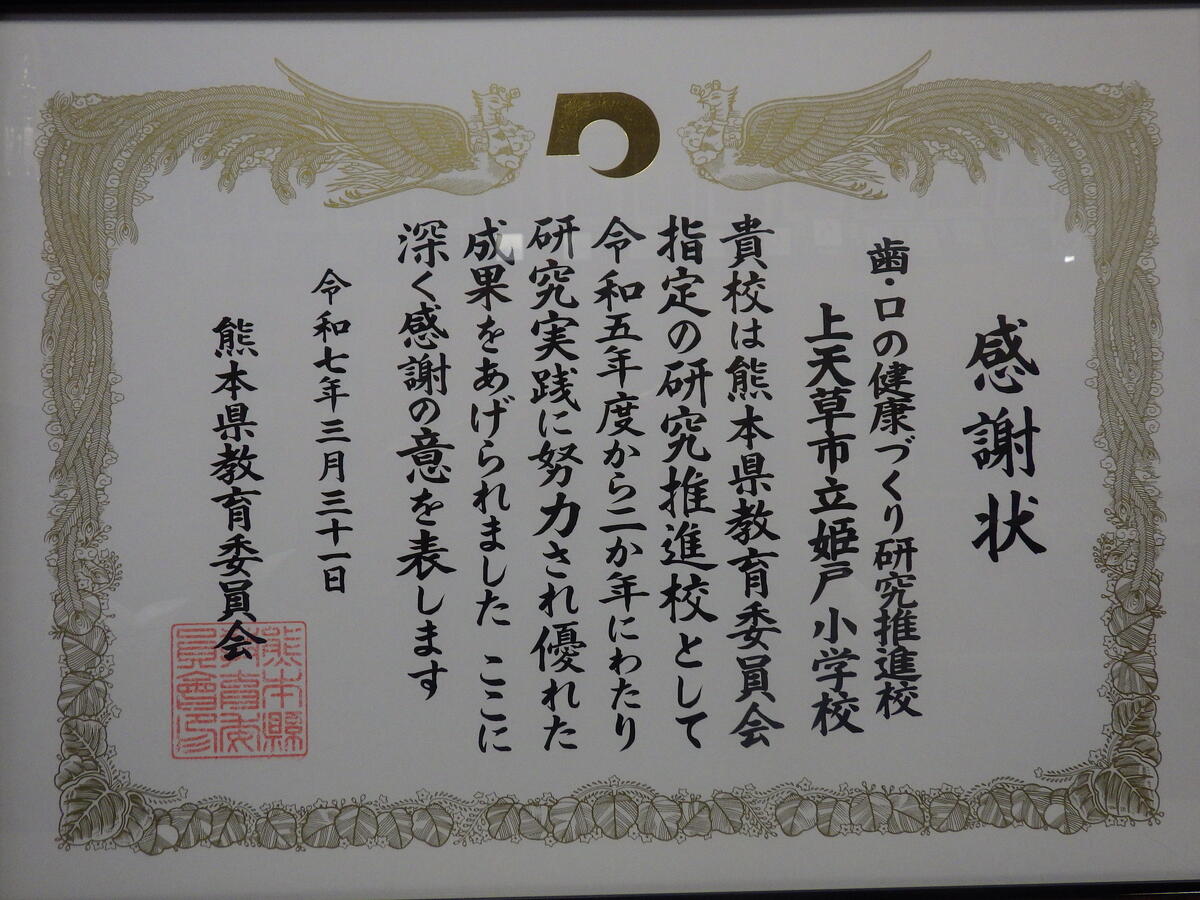 感謝状
歯・口の健康づくり研究推進校
上天草市立姫戸小学校
貴校は熊本県教育委員会
指定の研究推進校として
令和五年度から二か年にわたり
研究実践に努力され優れた
成果をあげられました ここに
深く感謝の意を表します
令和七年三月三十一日
熊本県教育委員会
熊本縣
教育委
員會印